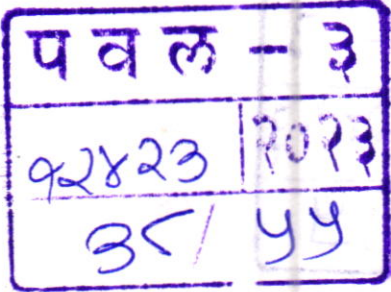 पवल - ३
१२४२३ | २०२३
३८ / ५५